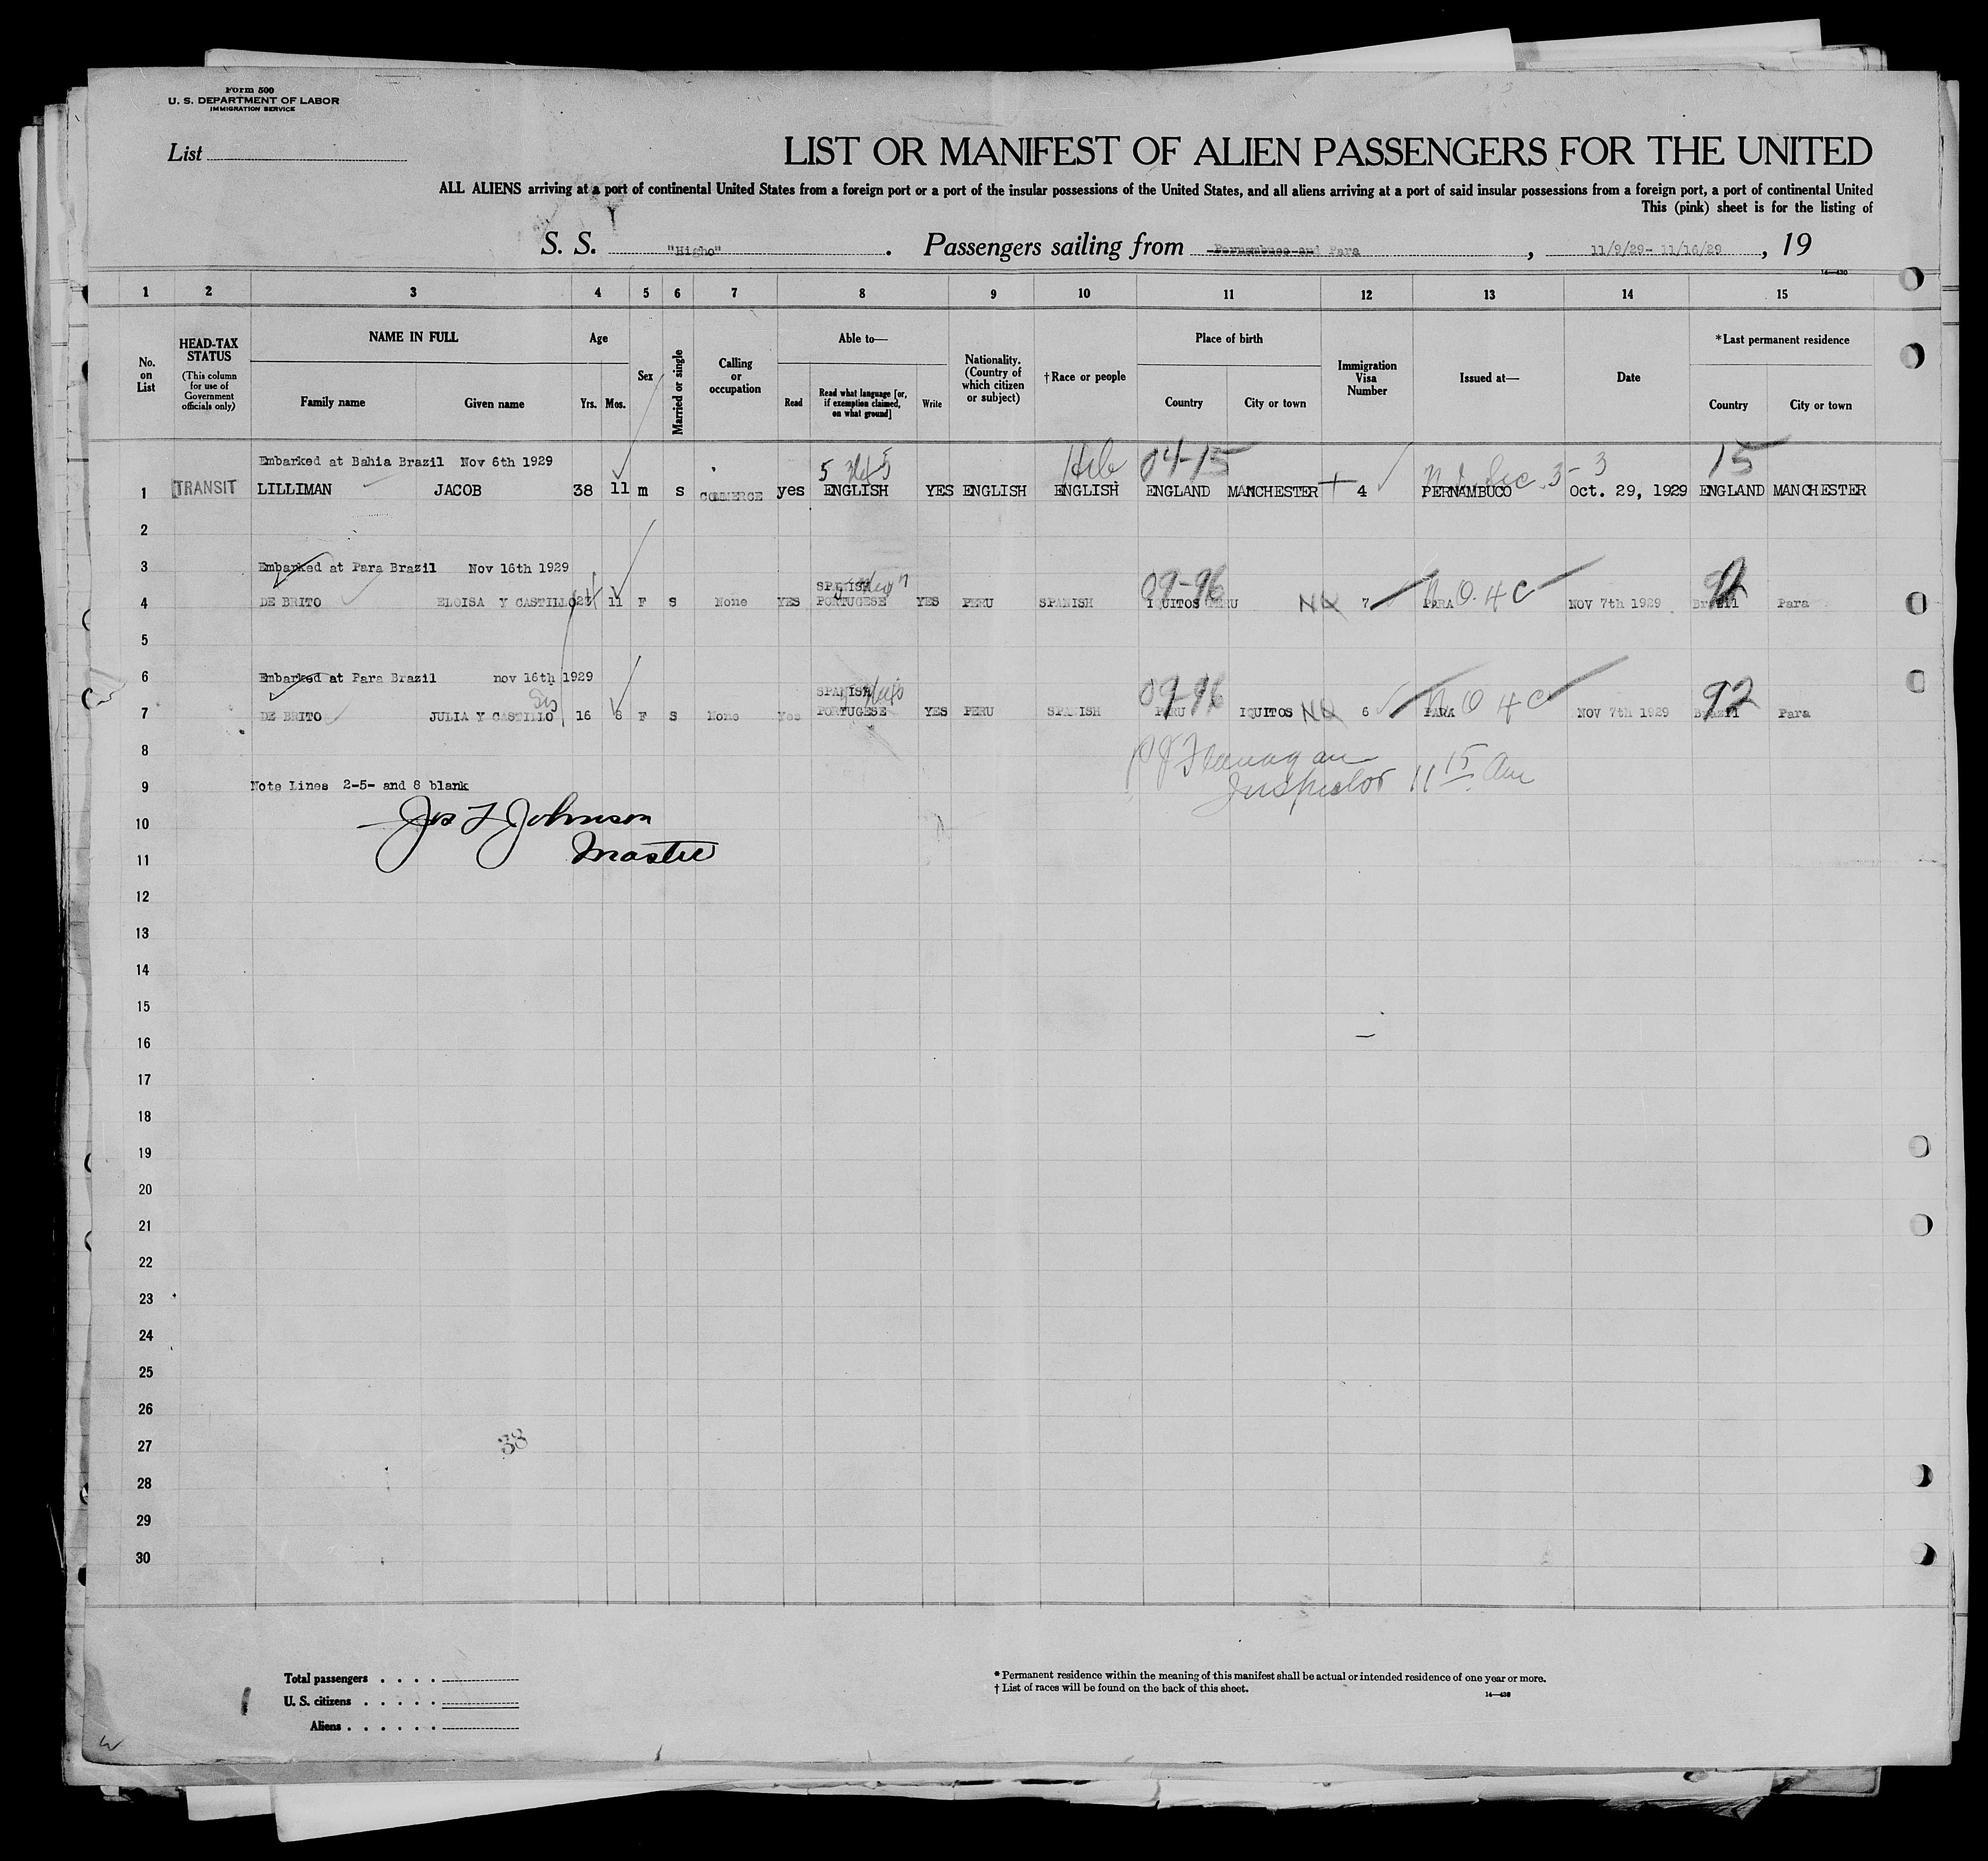 Form 500
U. S. DEPARTMENT OF LABOR
IMMIGRATION SERVICE
List
LIST OR MANIFEST OF ALIEN PASSENGERS FOR THE UNITED
ALL ALIENS arriving at a port of continental United States from a foreign port or a port of the insular possessions of the United States, and all aliens arriving at a port of said insular possessions from a foreign port, a port of continental United
This (pink) sheet is for the listing of
S. S. "Higho" . Passengers sailing from Pernambuco and Para , 11/9/29- 11/16/29 , 19
1 2 3 4 5 6 7 8 9 10 11 12 13 14 15
No. on List
HEAD-TAX STATUS (This column for use of Government officials only)
NAME IN FULL
Family name Given name
Age
Yrs. Mos.
Sex
Married or single
Calling or occupation
Able to—
Read Read what language [or, if exemption claimed, on what ground] Write
Nationality. (Country of which citizen or subject)
†Race or people
Place of birth
Country City or town
Immigration Visa Number
Issued at—
Date
*Last permanent residence
Country City or town
Embarked at Bahia Brazil Nov 6th 1929 Heb 04-15 3 15
1 TRANSIT LILLIMAN JACOB 38 11 m s COMMERCE yes ENGLISH YES ENGLISH ENGLISH ENGLAND MANCHESTER 4 PERNAMBUCO Oct. 29, 1929 ENGLAND MANCHESTER
2
3 Embarked at Para Brazil Nov 16th 1929
SPANISH 09-96 92
4 DE BRITO ELOISA Y CASTILLO 23 11 F S None YES PORTUGESE YES PERU SPANISH IQUITOS PERU NQ 7 PARA NOV 7th 1929 Brazil Para
5
6 Embarked at Para Brazil nov 16th 1929
Sis SPANISH 09-96 92
7 DE BRITO JULIA Y CASTILLO 16 8 F S None Yes PORTUGESE YES PERU SPANISH PERU IQUITOS NQ 6 PARA NOV 7th 1929 Brazil Para
8 P J Flanagan
9 Note Lines 2-5- and 8 blank Inspector 11 15 Am
10 Jos L Johnson
11 Master
12
13
14
15
16
17
18
19
20
21
22
23
24
25
26
27 38
28
29
30
Total passengers . . . .
U. S. citizens . . . . .
Aliens . . . . . .
* Permanent residence within the meaning of this manifest shall be actual or intended residence of one year or more.
† List of races will be found on the back of this sheet.